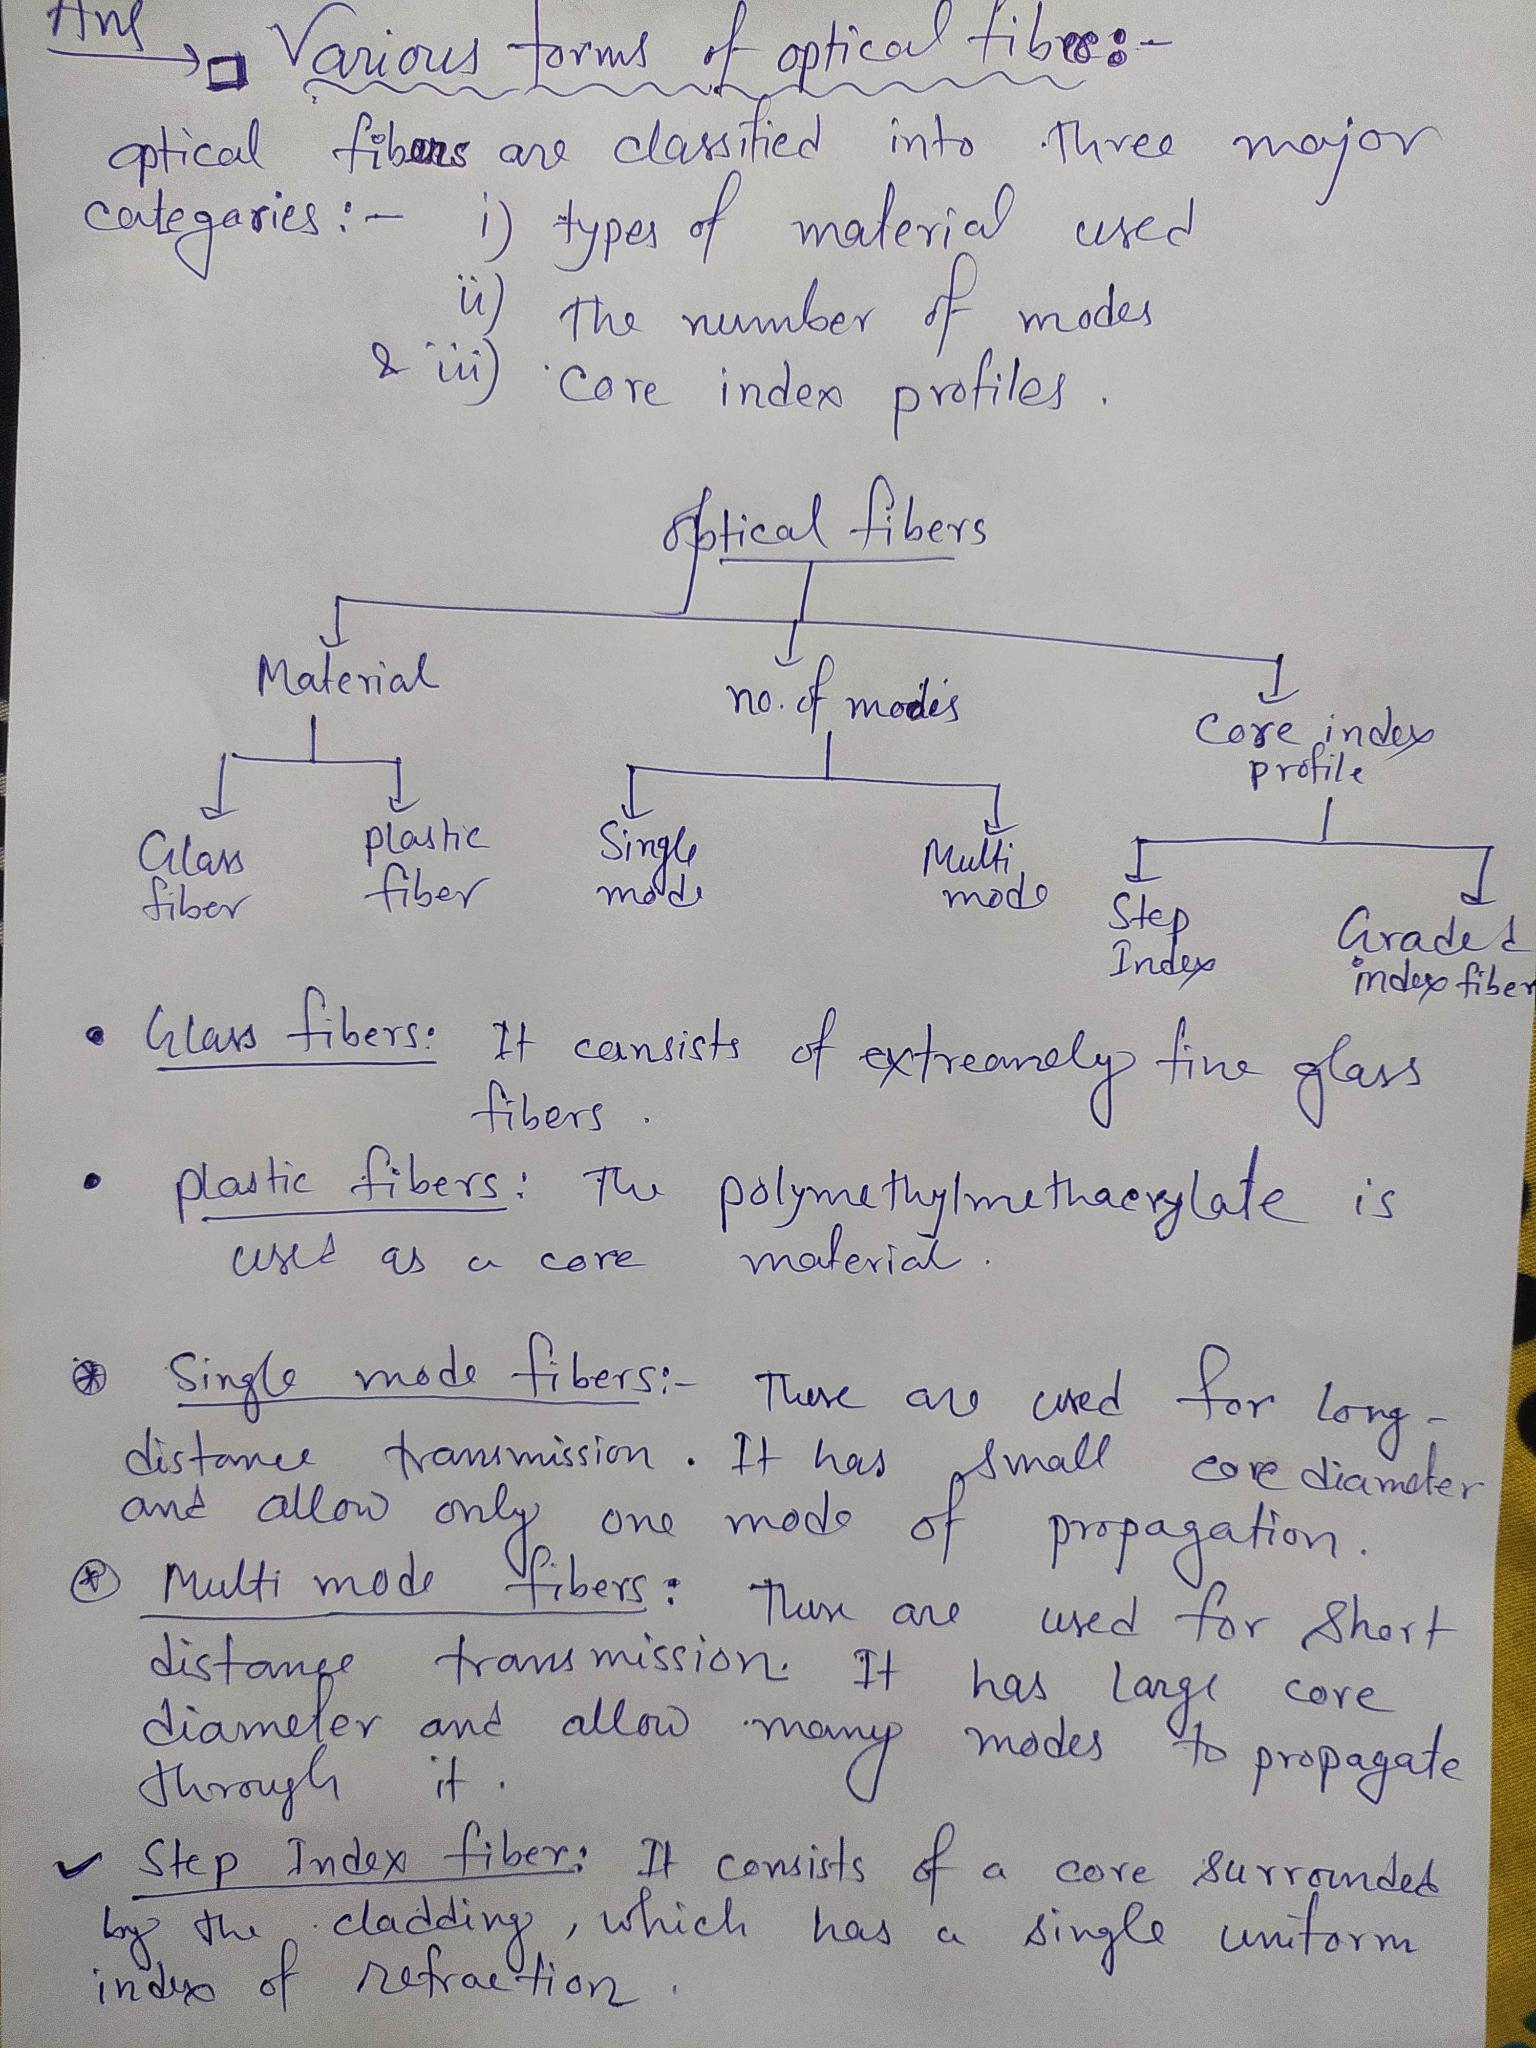 Ans → Various forms of optical fibre:-
optical fibers are classified into three major
categories:- i) types of material used
ii) The number of modes
& iii) Core index profiles.
optical fibers
Material
no. of modes
Core index
profile
Glass
fiber
plastic
fiber
Single
mode
Multi
mode
Step
Index
Graded
index fiber
• Glass fibers: It consists of extreamely fine glass
fibers.
• plastic fibers: The polymethylmethacrylate is
used as a core material.
Single mode fibers:- These are used for long-
distance transmission. It has small core diameter
and allow only one mode of propagation.
Multi mode fibers: These are used for short
distance transmission. It has large core
diameter and allow many modes to propagate
through it.
✓ Step Index fiber: It consists of a core surrounded
by the cladding, which has a single uniform
index of refraction.